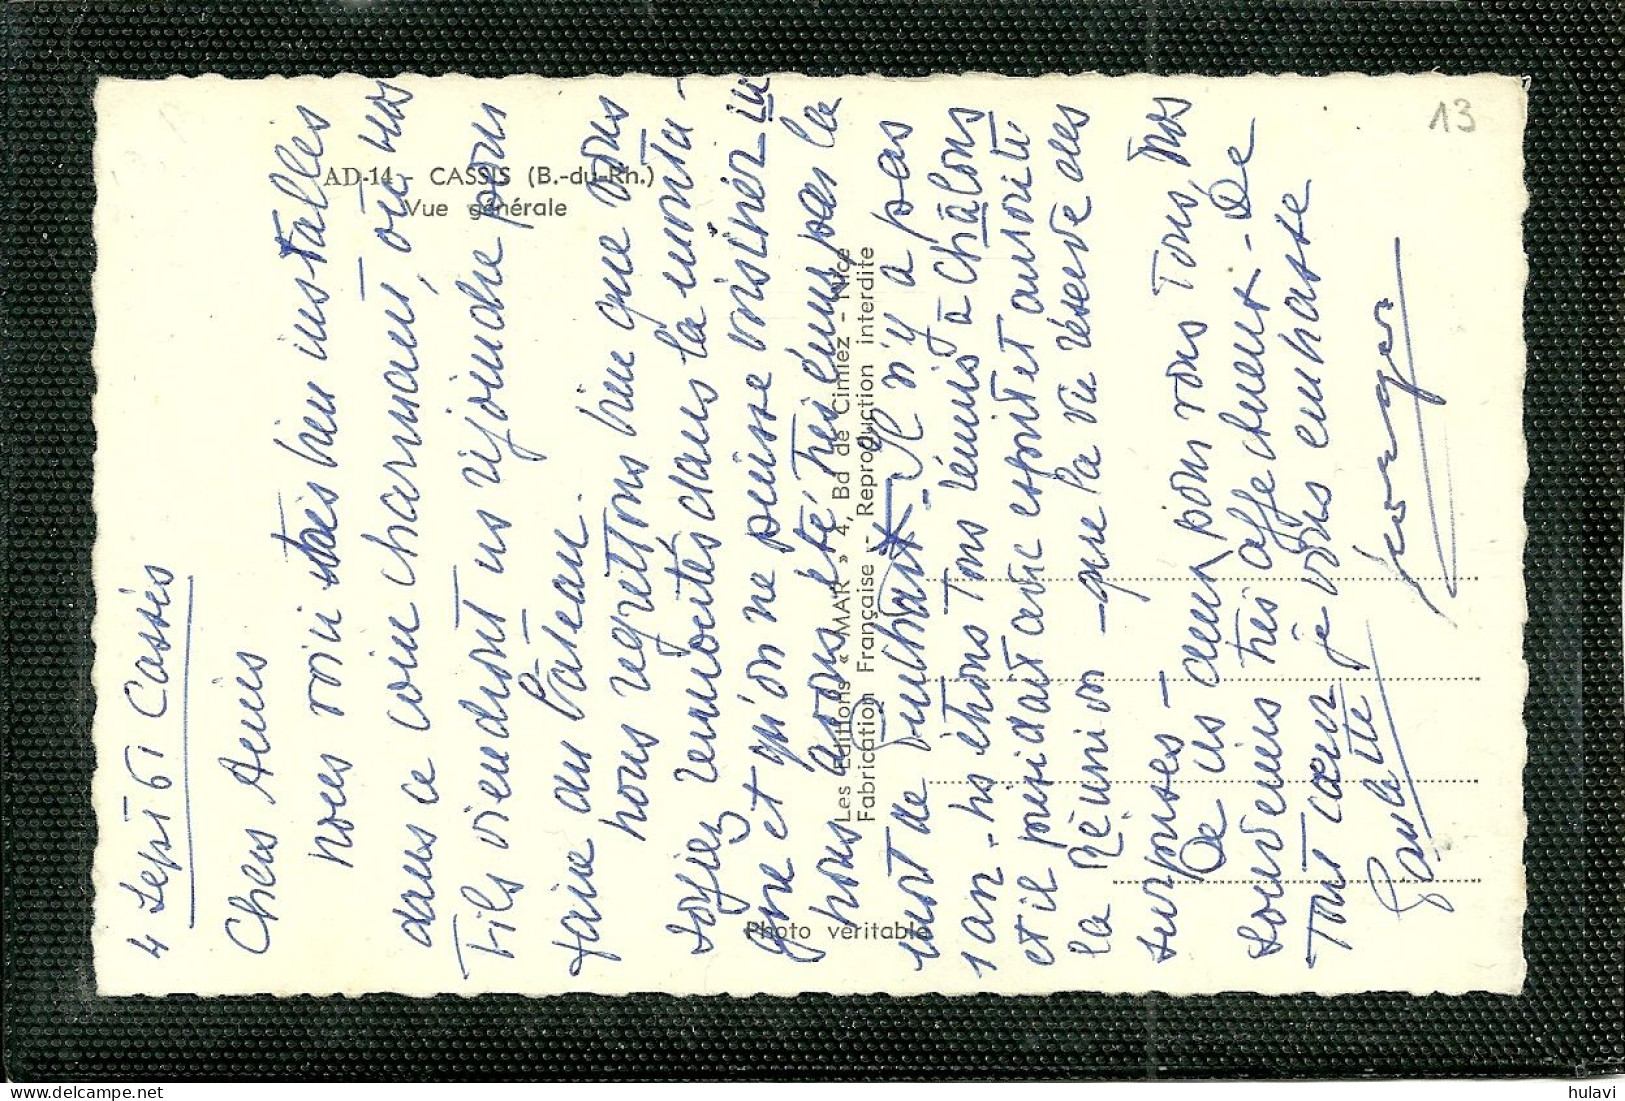 4 Sept 61 Cassis
Chers Amis
nous voici très bien installés
dans ce coin charmant, où nos
Fils viendront ns rejoindre pour
faire du bateau.
nous regrettons bien que vous
soyez remontés dans la monta-
gne et qu'on ne puisse voisiner ici
nous avons été très émus par la
mort de - Il n'y a pas
1 an - ns étions tous réunis à Châlons
et il présidait avec esprit et autorité
la Réunion - que la vie réserve des
surprises -
De ns deux pour vous Tous nos
souvenirs très affectueux - De
Tout cœur je vous embrasse
Paulette
Georges
13
AD-14 - CASSIS (B.-du-Rh.)
Vue générale
Les Editions « MAR » 4, Bd de Cimiez - Nice
Fabrication Française - Reproduction interdite
Photo véritable
hulavi